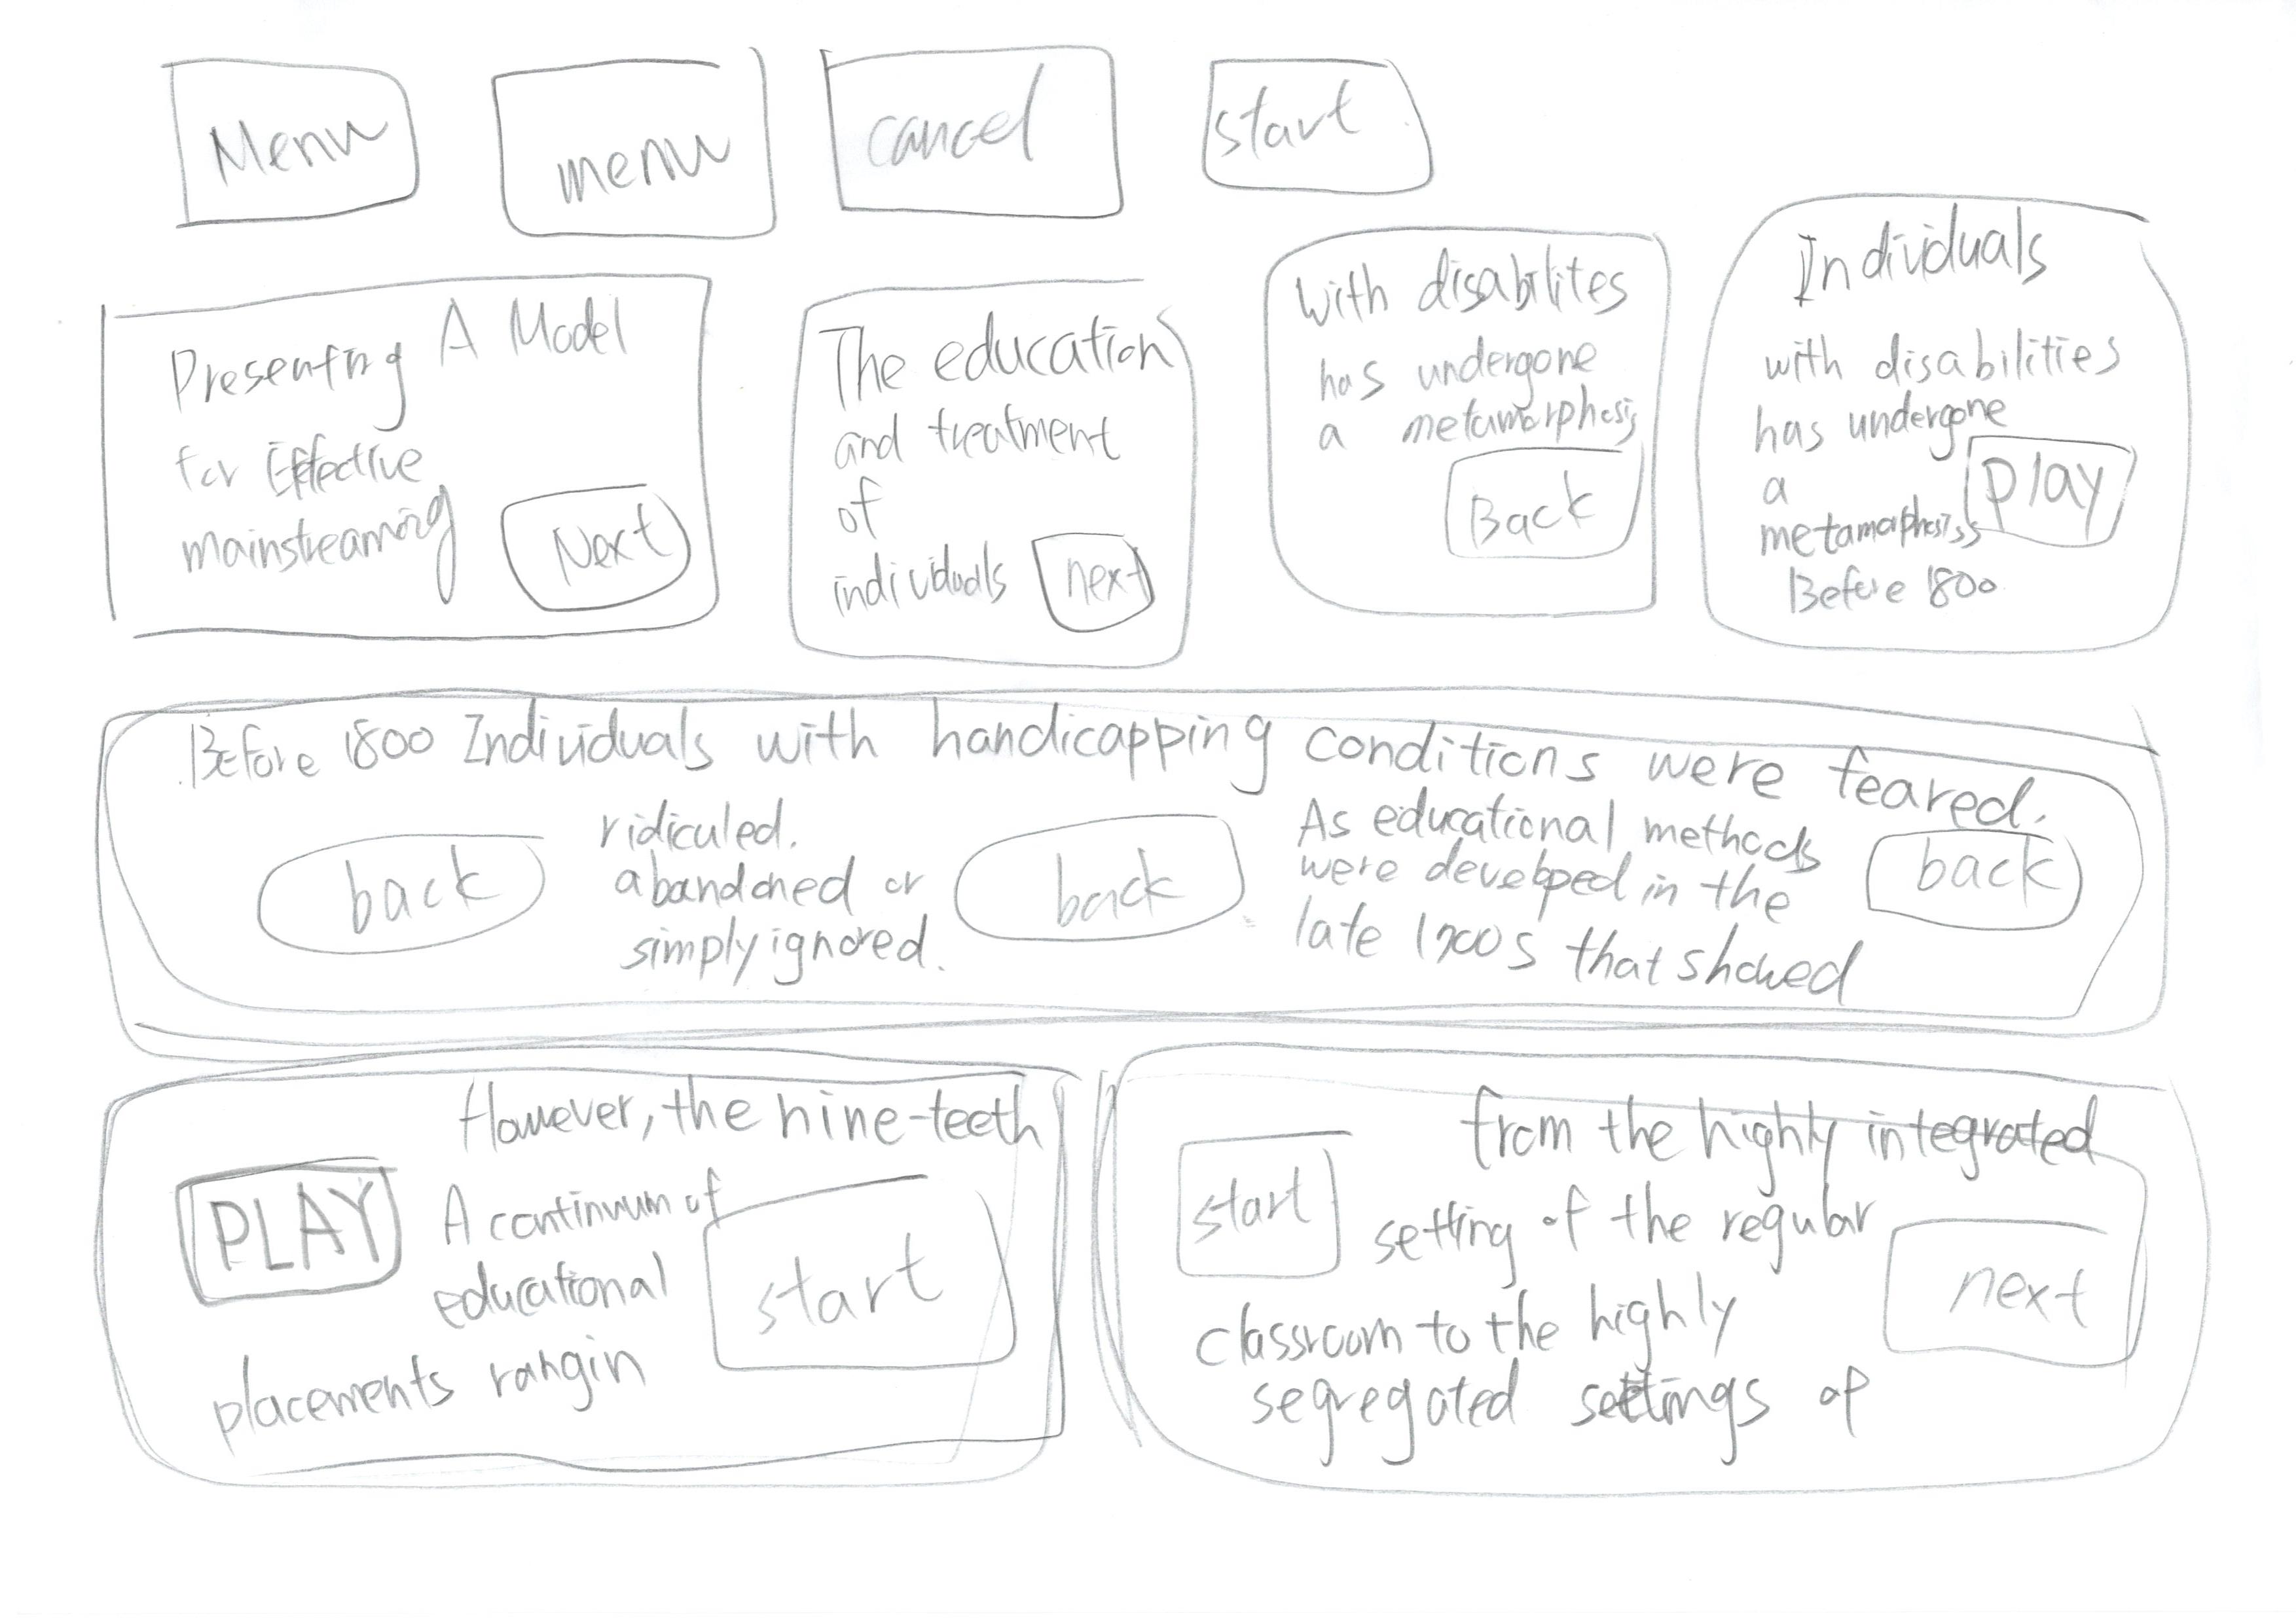 Menu
menu
cancel
start
Presenting A Model
for Effective
mainstreaming
Next
The education
and treatment
of
individuals
next
With disabilites
has undergone
a metamorphosis
Back
Individuals
with disabilities
has undergone
a
play
metamorphosiss
Before 1800
Before 1800 Individuals with handicapping conditions were feared.
back
ridiculed.
abandoned or
simply ignored.
back
As educational methods
were developed in the
late 1700s that showed
back
However, the nine-teeth
PLAY
A continuum of
educational
placements rangin
start
from the highly integrated
start
setting of the regular
classroom to the highly
segregated settings of
next